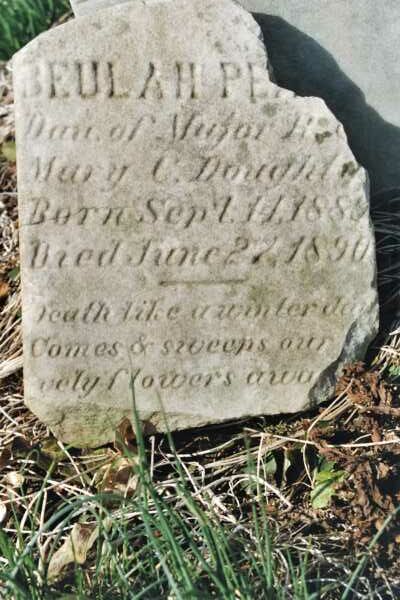 BEULAH PE
Dau. of Major
Mary C. Dought
Born Sept. 11, 188
Died June 27, 1890
Death like a winter day
Comes & sweeps our
ovely flowers away